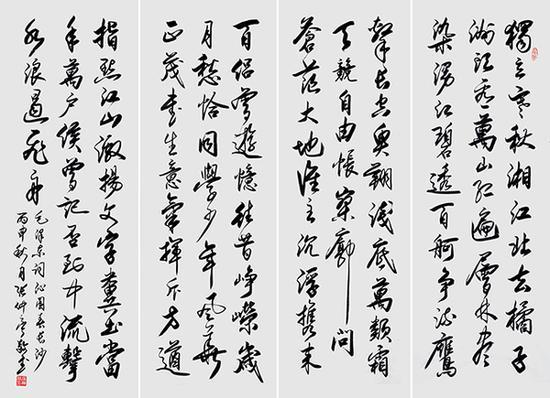 獨立寒秋湘江北去橘子
洲頭看萬山紅遍層林盡
染漫江碧透百舸爭流鷹
擊長空魚翔淺底萬類霜
天競自由悵寥廓問
蒼茫大地誰主沉浮攜來
百侶曾遊憶往昔崢嶸歲
月稠恰同學少年風華
正茂書生意氣揮斥方遒
指點江山激揚文字糞土當
年萬戶侯曾記否到中流擊
水浪遏飛舟
毛澤東詞沁園春長沙
丙申秋月張仲亭書